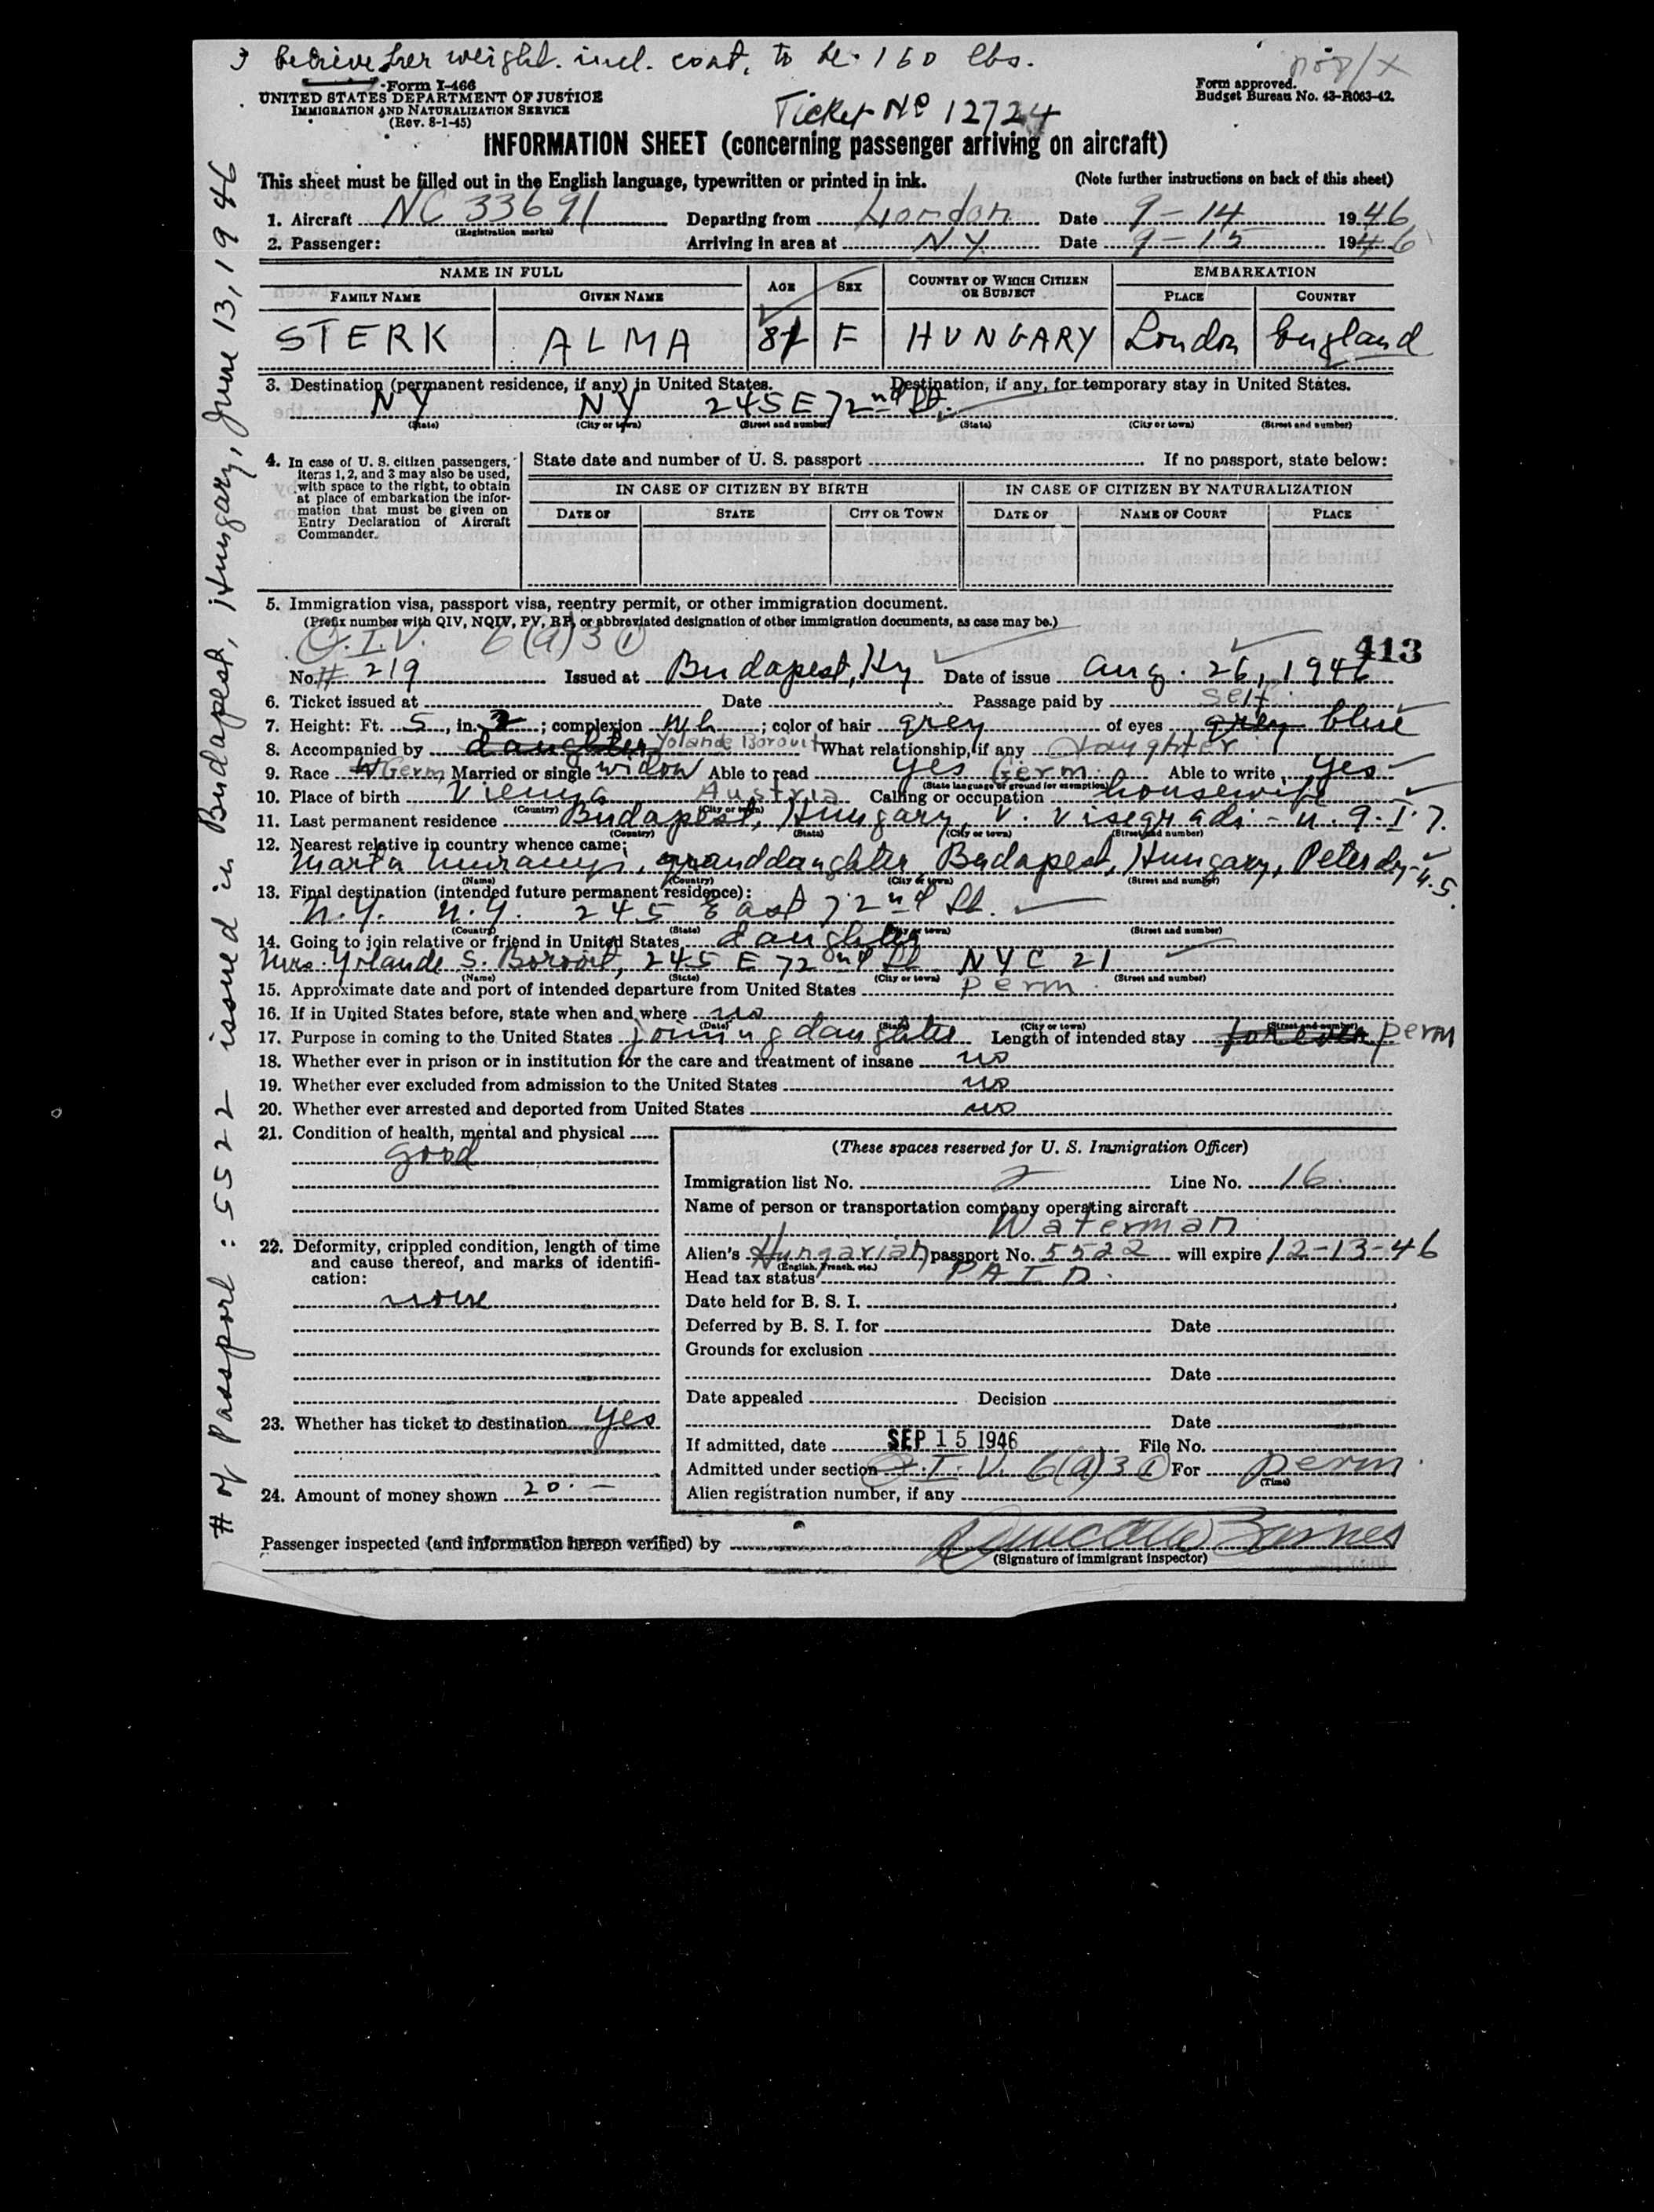 believe her weight. incl. coat, to be. 160 lbs.
Form I-466
UNITED STATES DEPARTMENT OF JUSTICE
IMMIGRATION AND NATURALIZATION SERVICE
(Rev. 8-1-45)
Ticket No 12724
Form approved.
Budget Bureau No. 43-R063-42.
INFORMATION SHEET (concerning passenger arriving on aircraft)
This sheet must be filled out in the English language, typewritten or printed in ink. (Note further instructions on back of this sheet)
1. Aircraft NC 33691 Departing from London Date 9-14 1946
(Registration marks)
2. Passenger: Arriving in area at N.Y. Date 9-15 1946
NAME IN FULL AGE SEX COUNTRY OF WHICH CITIZEN OR SUBJECT EMBARKATION
FAMILY NAME GIVEN NAME PLACE COUNTRY
STERK ALMA 81 F HUNGARY London England
3. Destination (permanent residence, if any) in United States. Destination, if any, for temporary stay in United States.
NY NY 245 E 72nd St.
(State) (City or town) (Street and number) (State) (City or town) (Street and number)
4. In case of U. S. citizen passengers, items 1, 2, and 3 may also be used, with space to the right, to obtain at place of embarkation the information that must be given on Entry Declaration of Aircraft Commander.
State date and number of U. S. passport If no passport, state below:
IN CASE OF CITIZEN BY BIRTH IN CASE OF CITIZEN BY NATURALIZATION
DATE OF STATE CITY OR TOWN DATE OF NAME OF COURT PLACE
5. Immigration visa, passport visa, reentry permit, or other immigration document.
(Prefix number with QIV, NQIV, PV, RP, or abbreviated designation of other immigration documents, as case may be.)
Q.I.V. 6(a)3(1)
413
No. # 219 Issued at Budapest, Hy Date of issue Aug. 26, 1946
6. Ticket issued at Date Passage paid by Self
7. Height: Ft. 5, in. 2; complexion Wh; color of hair grey of eyes grey blue
8. Accompanied by daughter Yolande Borovit What relationship, if any Daughter
9. Race W Germ Married or single Widow Able to read yes Germ. Able to write yes
(State language or ground for exemption)
10. Place of birth Vienna Austria Calling or occupation housewife
(Country) (City or town)
11. Last permanent residence Budapest, Hungary, V. Visegradi-u. 9. I. 7.
(Country) (State) (City or town) (Street and number)
12. Nearest relative in country whence came:
Marta Muranyi, granddaughter, Budapest, Hungary, Peterdy-u. 5.
(Name) (Country) (City or town) (Street and number)
13. Final destination (intended future permanent residence):
N.Y. N.Y. 245 East 72nd St.
(Country) (State) (City or town) (Street and number)
14. Going to join relative or friend in United States daughter
Mrs. Yolande S. Borovit, 245 E 72nd St. NYC 21
(Name) (State) (City or town) (Street and number)
15. Approximate date and port of intended departure from United States perm.
16. If in United States before, state when and where no
(Date) (State) (City or town) (Street and number)
17. Purpose in coming to the United States joining daughter Length of intended stay forever perm
18. Whether ever in prison or in institution for the care and treatment of insane no
19. Whether ever excluded from admission to the United States no
20. Whether ever arrested and deported from United States no
21. Condition of health, mental and physical
good
22. Deformity, crippled condition, length of time and cause thereof, and marks of identification:
none
23. Whether has ticket to destination yes
24. Amount of money shown 20.-
(These spaces reserved for U. S. Immigration Officer)
Immigration list No. 2 Line No. 16.
Name of person or transportation company operating aircraft
Waterman
Alien's Hungarian passport No. 5522 will expire 12-13-46
(English, French, etc.)
Head tax status PAID.
Date held for B. S. I.
Deferred by B. S. I. for Date
Grounds for exclusion
Date
Date appealed Decision
Date
If admitted, date SEP 15 1946 File No.
Admitted under section Q.I.V. 6(a)3(1) For perm.
(Time)
Alien registration number, if any
Passenger inspected (and information hereon verified) by Barnes
(Signature of immigrant inspector)
# of Passport: 5522 issued in Budapest, Hungary, June 13, 1946